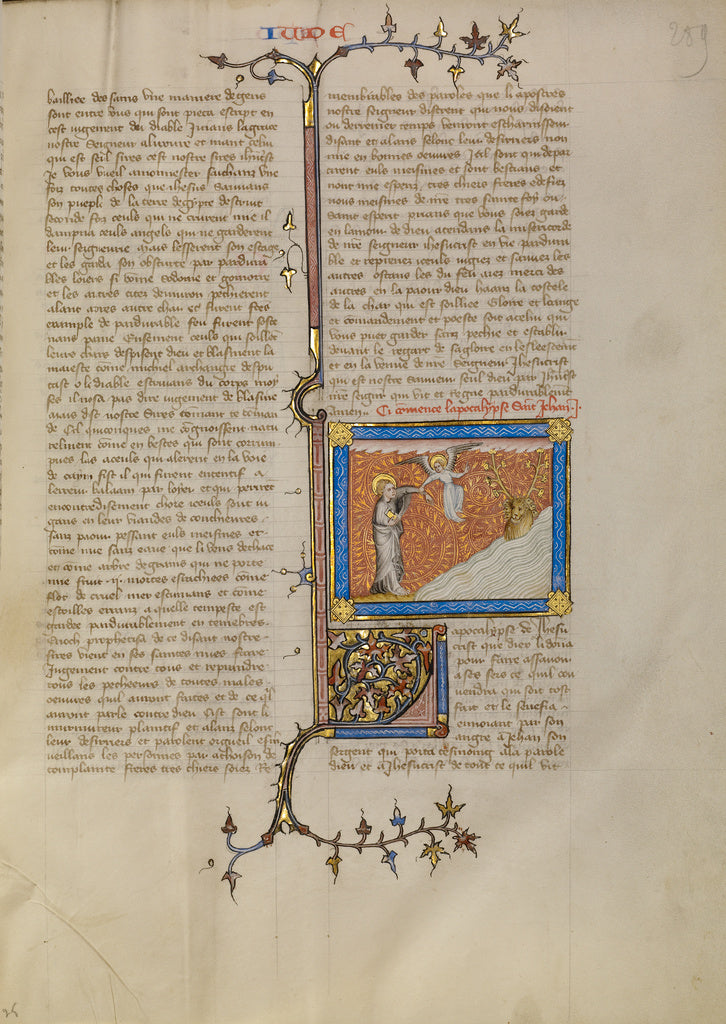 IUDE
289
bailliee des sains une maniere de gens
sont entre vous qui sont pieca escript en
cest iugement du diable
nostre Seigneur a luxure et niant celui
qui est seul sires cest nostre sires ihucrist
Je vous vueil amonnester sachans une
fois toutes choses que ihesus sauvans
son pueple de la terre degypte destruit
seconde foiz ceuls qui ne crurent mie il
dampna ceuls angels qui ne garderent
leur seigneurie mais lesserent son
et les garda son obscurte par pardura
bles loiens si come Sodome et gomorre
et les autres citez
alant apres autre char et furent fees
example de pardurable feu furent
nans paine Ensement ceuls qui soillent
leurs chars despisent dieu et blasment la
maieste come michiel archangre despu
tast o le diable estrivans du corps moy
ses il nosa pas dire iugement de blasme
mais dist nostre Sires
de Cil quiconques me congnoissent natu
relment come en bestes qui sont corrum
pues las a ceuls qui alerent en la voie
de caym fist il qui furent
lerreur balaam par loyer et qui perirent
encontredisement chore iceuls sont
grans en leur viandes de
sans paour pessant euls meismes et
come nue sans eaue que li vens dechace
et come arbre de grains qui ne porte
mie fruit .ij. mortes esrachiees come
flos de cruel mer escumans et come
estoilles errans a quelle tempeste est
gardee pardurablement en tenebres.
Enoch prophetisa de ce disant nostre
sires vient en ses saintes mies faire
Jugement contre tous et reprendre
tous les pecheeurs de toutes males
oeuvres quil auront faites et de ce quil
auront parle contre dieu Cist sont li
murmureur plaintif et alans selon
leur desirriers et parolent orgueil esm
veillans les personnes par achoison de
complainte freres tres chiers soiez Re
membrables des paroles que li apostres
nostre seigneur distrent qui nous disoient
ou derrenier temps venront
disant et alans selonc leur desirriers non
mie en bonnes oeuvres Icil sont qui depar
tirent euls meismes et sont bestians et
nont mie esperit tres chiers freres edefiez
vous meismes de nre tres sainte foy ou
saint esperit prians que vous soiez garde
en lamour de dieu atendans la misericorde
de nre seigneur ihesucrist en vie pardura
ble et reprenez iceuls iugiez et sauvez les
autres ostans les du feu aiez merci des
autres en la paour dieu haans la costele
de la char qui est soilliee Gloire et loenge
et comandement et poeste soit a celui qui
vous puet garder sans pechie et establir
devant le regart de sa gloire en lesleescent
et en la venue de nre Seigneur Jhesucrist
qui est nostre sauveur seul dieu par ihucrist
nre seigneur qui vit et regne pardurablement
amen. Ci comence lapocalypse Saint Jehan j.
apocalypse de Jhesu
crist que diex li dona
pour faire assavoir
a ses sers ce quil con
uendra qui soit tost
fait et le senefia
ennoiant par son
angre a Jehan son
sergent qui porta tesmoing a la parole
dieu et a Jhesucrist de tout ce quil vit